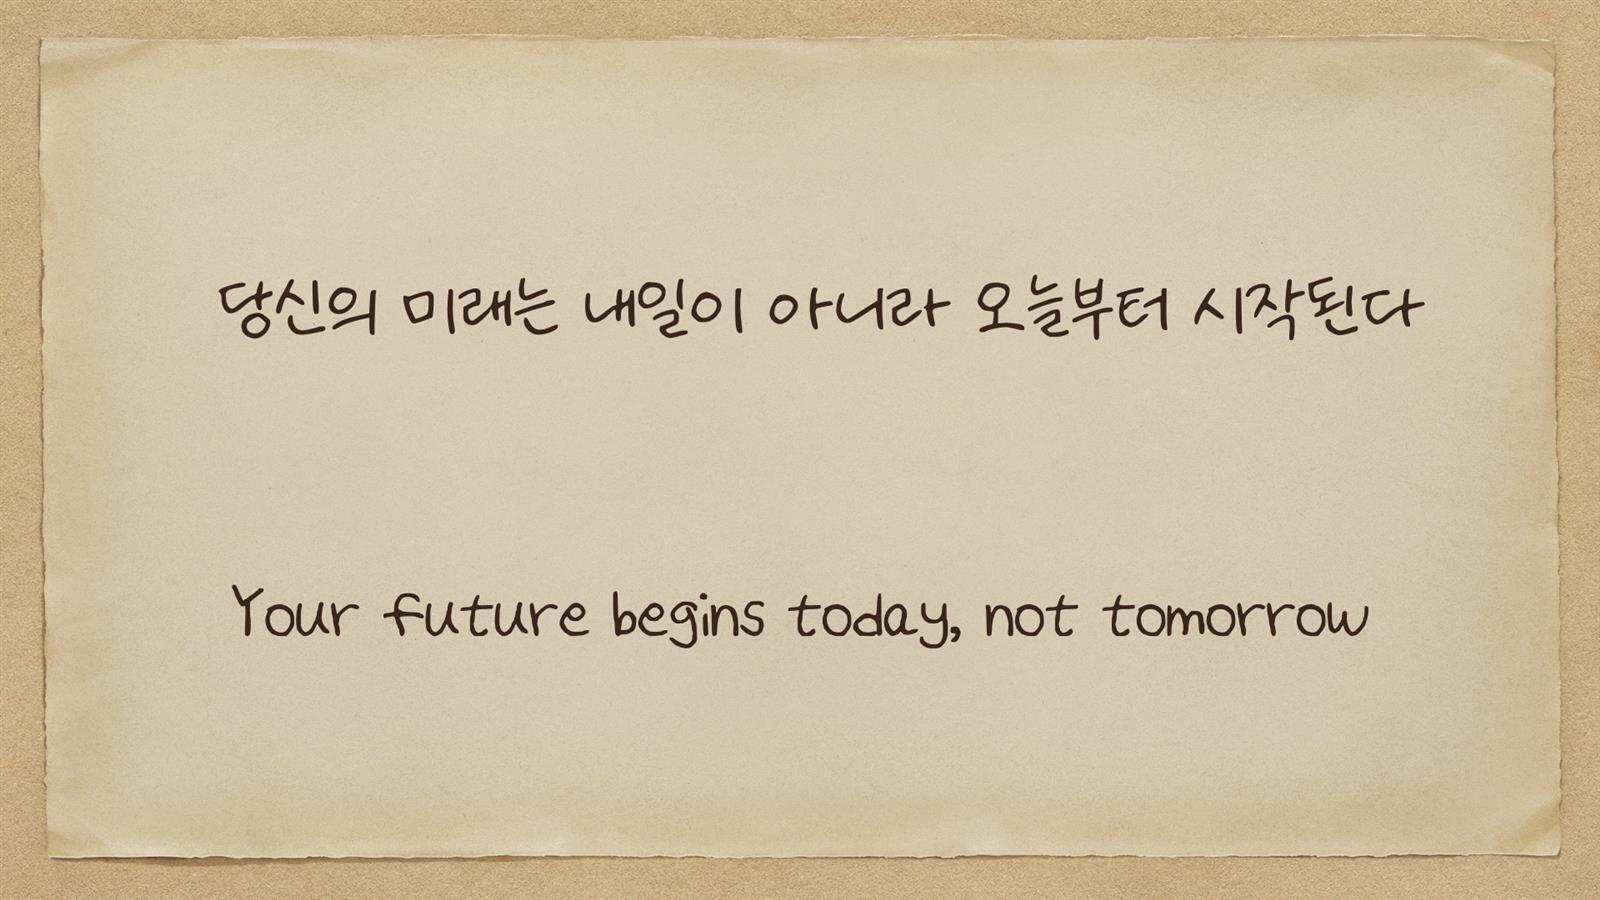 당신의 미래는 내일이 아니라 오늘부터 시작된다
Your future begins today, not tomorrow